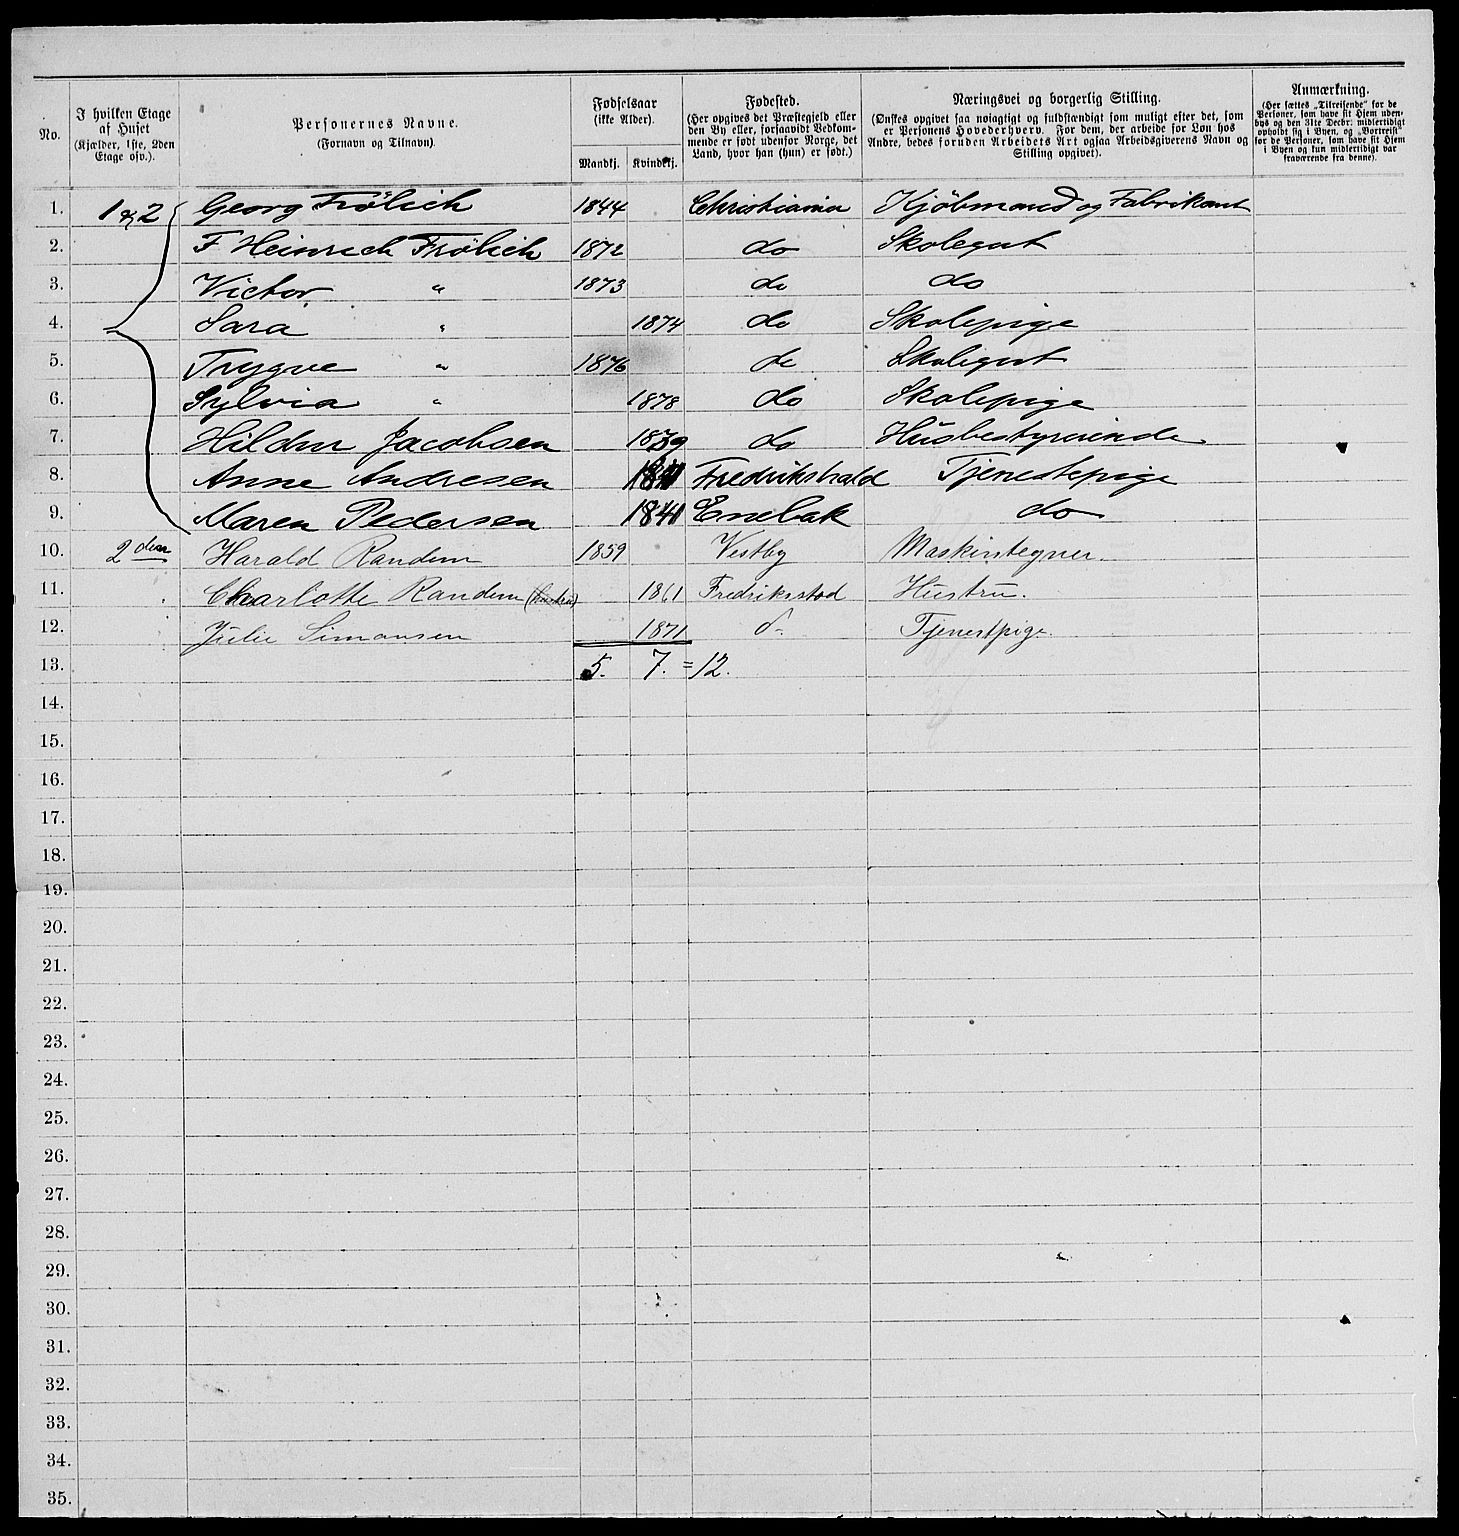 No.
I hvilken Etage af Huset (Kjælder, 1ste, 2den Etage osv.).
Personernes Navne. (Fornavn og Tilnavn).
Fødselsaar (ikke Alder).
Mandkj. Kvindekj.
Fødested. (Her opgives det Præstegjeld eller den By eller, forsaavidt Vedkommende er født udenfor Norge, det Land, hvor han (hun) er født.)
Næringsvei og borgerlig Stilling. (Ønskes opgivet saa nøiagtigt og fuldstændigt som muligt efter det, som er Personens Hovederhverv. For dem, der arbeide for Løn hos Andre, bedes foruden Arbeidets Art ogsaa Arbeidsgiverens Navn og Stilling opgivet).
Anmærkning. (Her sættes „Tilreisende“ for de Personer, som have sit Hjem udenbys og den 31te Decbr: midlertidigt opholdt sig i Byen, og „Bortreist“ for de Personer, som have sit Hjem i Byen og kun midlertidigt var fraværende fra denne).
1. 1 & 2 Georg Frölich 1844 Christiania Kjöbmand og Fabrikant
2. F Heinrich Frölich 1872 do Skolegut
3. Victor " 1873 do do
4. Sara " 1874 do Skolepige
5. Trygve " 1876 do Skolegut
6. Sylvia " 1878 do Skolepige
7. Hildur Jacobsen 1839 do Husbestyrerinde
8. Anne Andresen Fredrikshald Tjenestepige
9. Maren Pedersen 1841 Enebak do
10. 2den Harald Randem 1859 Vestby Maskintegner.
11. Charlotte Randem (hustru) 1861 Fredriksstad Hustru.
12. Julie Simonsen 1871 d. Tjenestpige.
13. 5. 7. = 12.
14.
15.
16.
17.
18.
19.
20.
21.
22.
23.
24.
25.
26.
27.
28.
29.
30.
31.
32.
33.
34.
35.